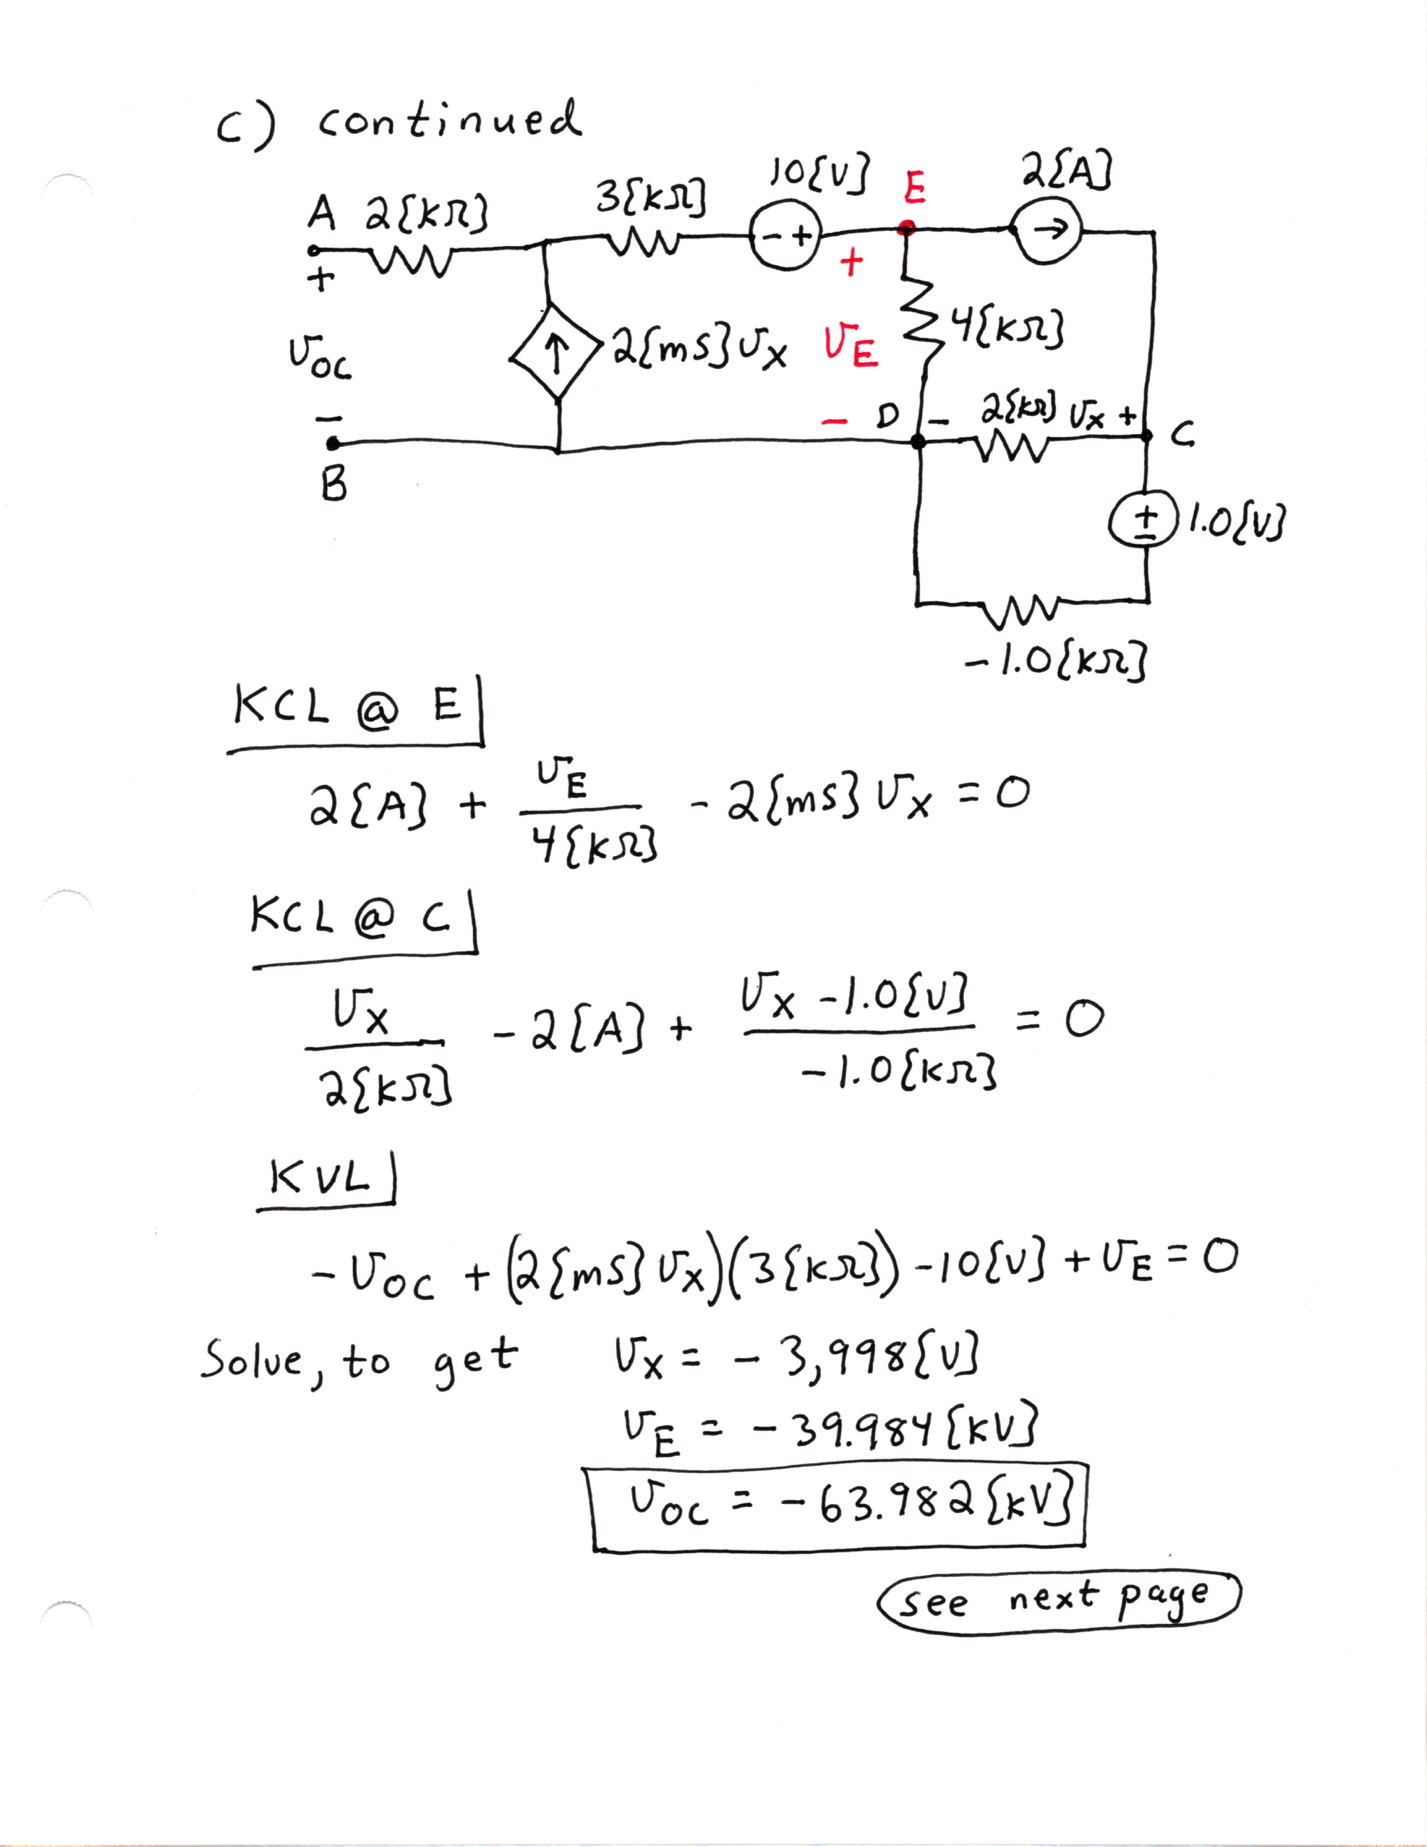 c) continued
A 2{kΩ} 3{kΩ} 10{V} E 2{A}
- + →
+ +
v_OC ↑ 2{mS}v_X v_E 4{kΩ}
- - D - 2{kΩ} v_X + C
B
± 1.0{V}
-1.0{kΩ}
KCL @ E
2{A} + v_E / 4{kΩ} - 2{mS}v_X = 0
KCL @ C
v_X / 2{kΩ} - 2{A} + (v_X - 1.0{V}) / -1.0{kΩ} = 0
KVL
-v_OC + (2{mS}v_X)(3{kΩ}) - 10{V} + v_E = 0
Solve, to get v_X = - 3,998{V}
v_E = - 39.984{kV}
v_OC = - 63.982{kV}
see next page